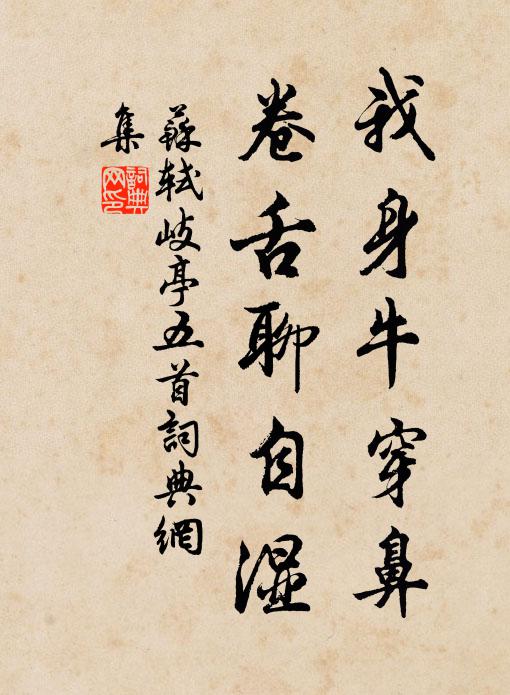 我身牛穿鼻
卷舌聊自濕
蘇軾岐亭五首詞典網
集
詞典網印